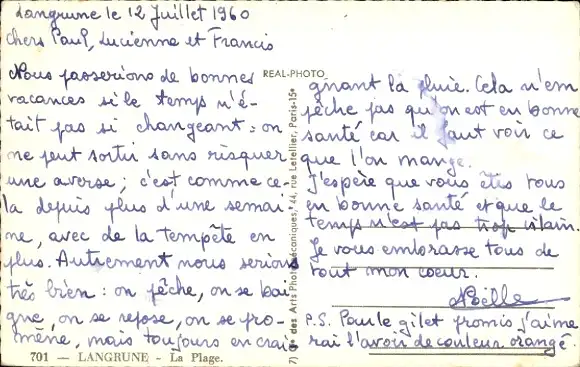 Langrune le 12 Juillet 1960
chers Paul, Lucienne et Francis
Nous passerions de bonnes
vacances si le temps n'é-
tait pas si changeant : on
ne peut sortir sans risquer
une averse ; c'est comme ce-
la depuis plus d'une semai-
ne, avec de la tempête en
plus. Autrement nous serions
très bien : on pêche, on se bai-
gne, on se repose, on se pro-
mène, mais toujours en crai-
701 — LANGRUNE - La Plage.
REAL-PHOTO
des Arts Photomécaniques, 44, rue Letellier, Paris-15e
gnant la pluie. Cela n'em
pêche pas qu'on est en bonne
santé car il faut voir ce
que l'on mange.
J'espère que vous êtes tous
en bonne santé et que le
temps n'est pas trop vilain.
Je vous embrasse tous de
tout mon coeur.
Noëlle
P.S. Paul le gilet promis j'aime
rai l'avoir de couleur orangé.